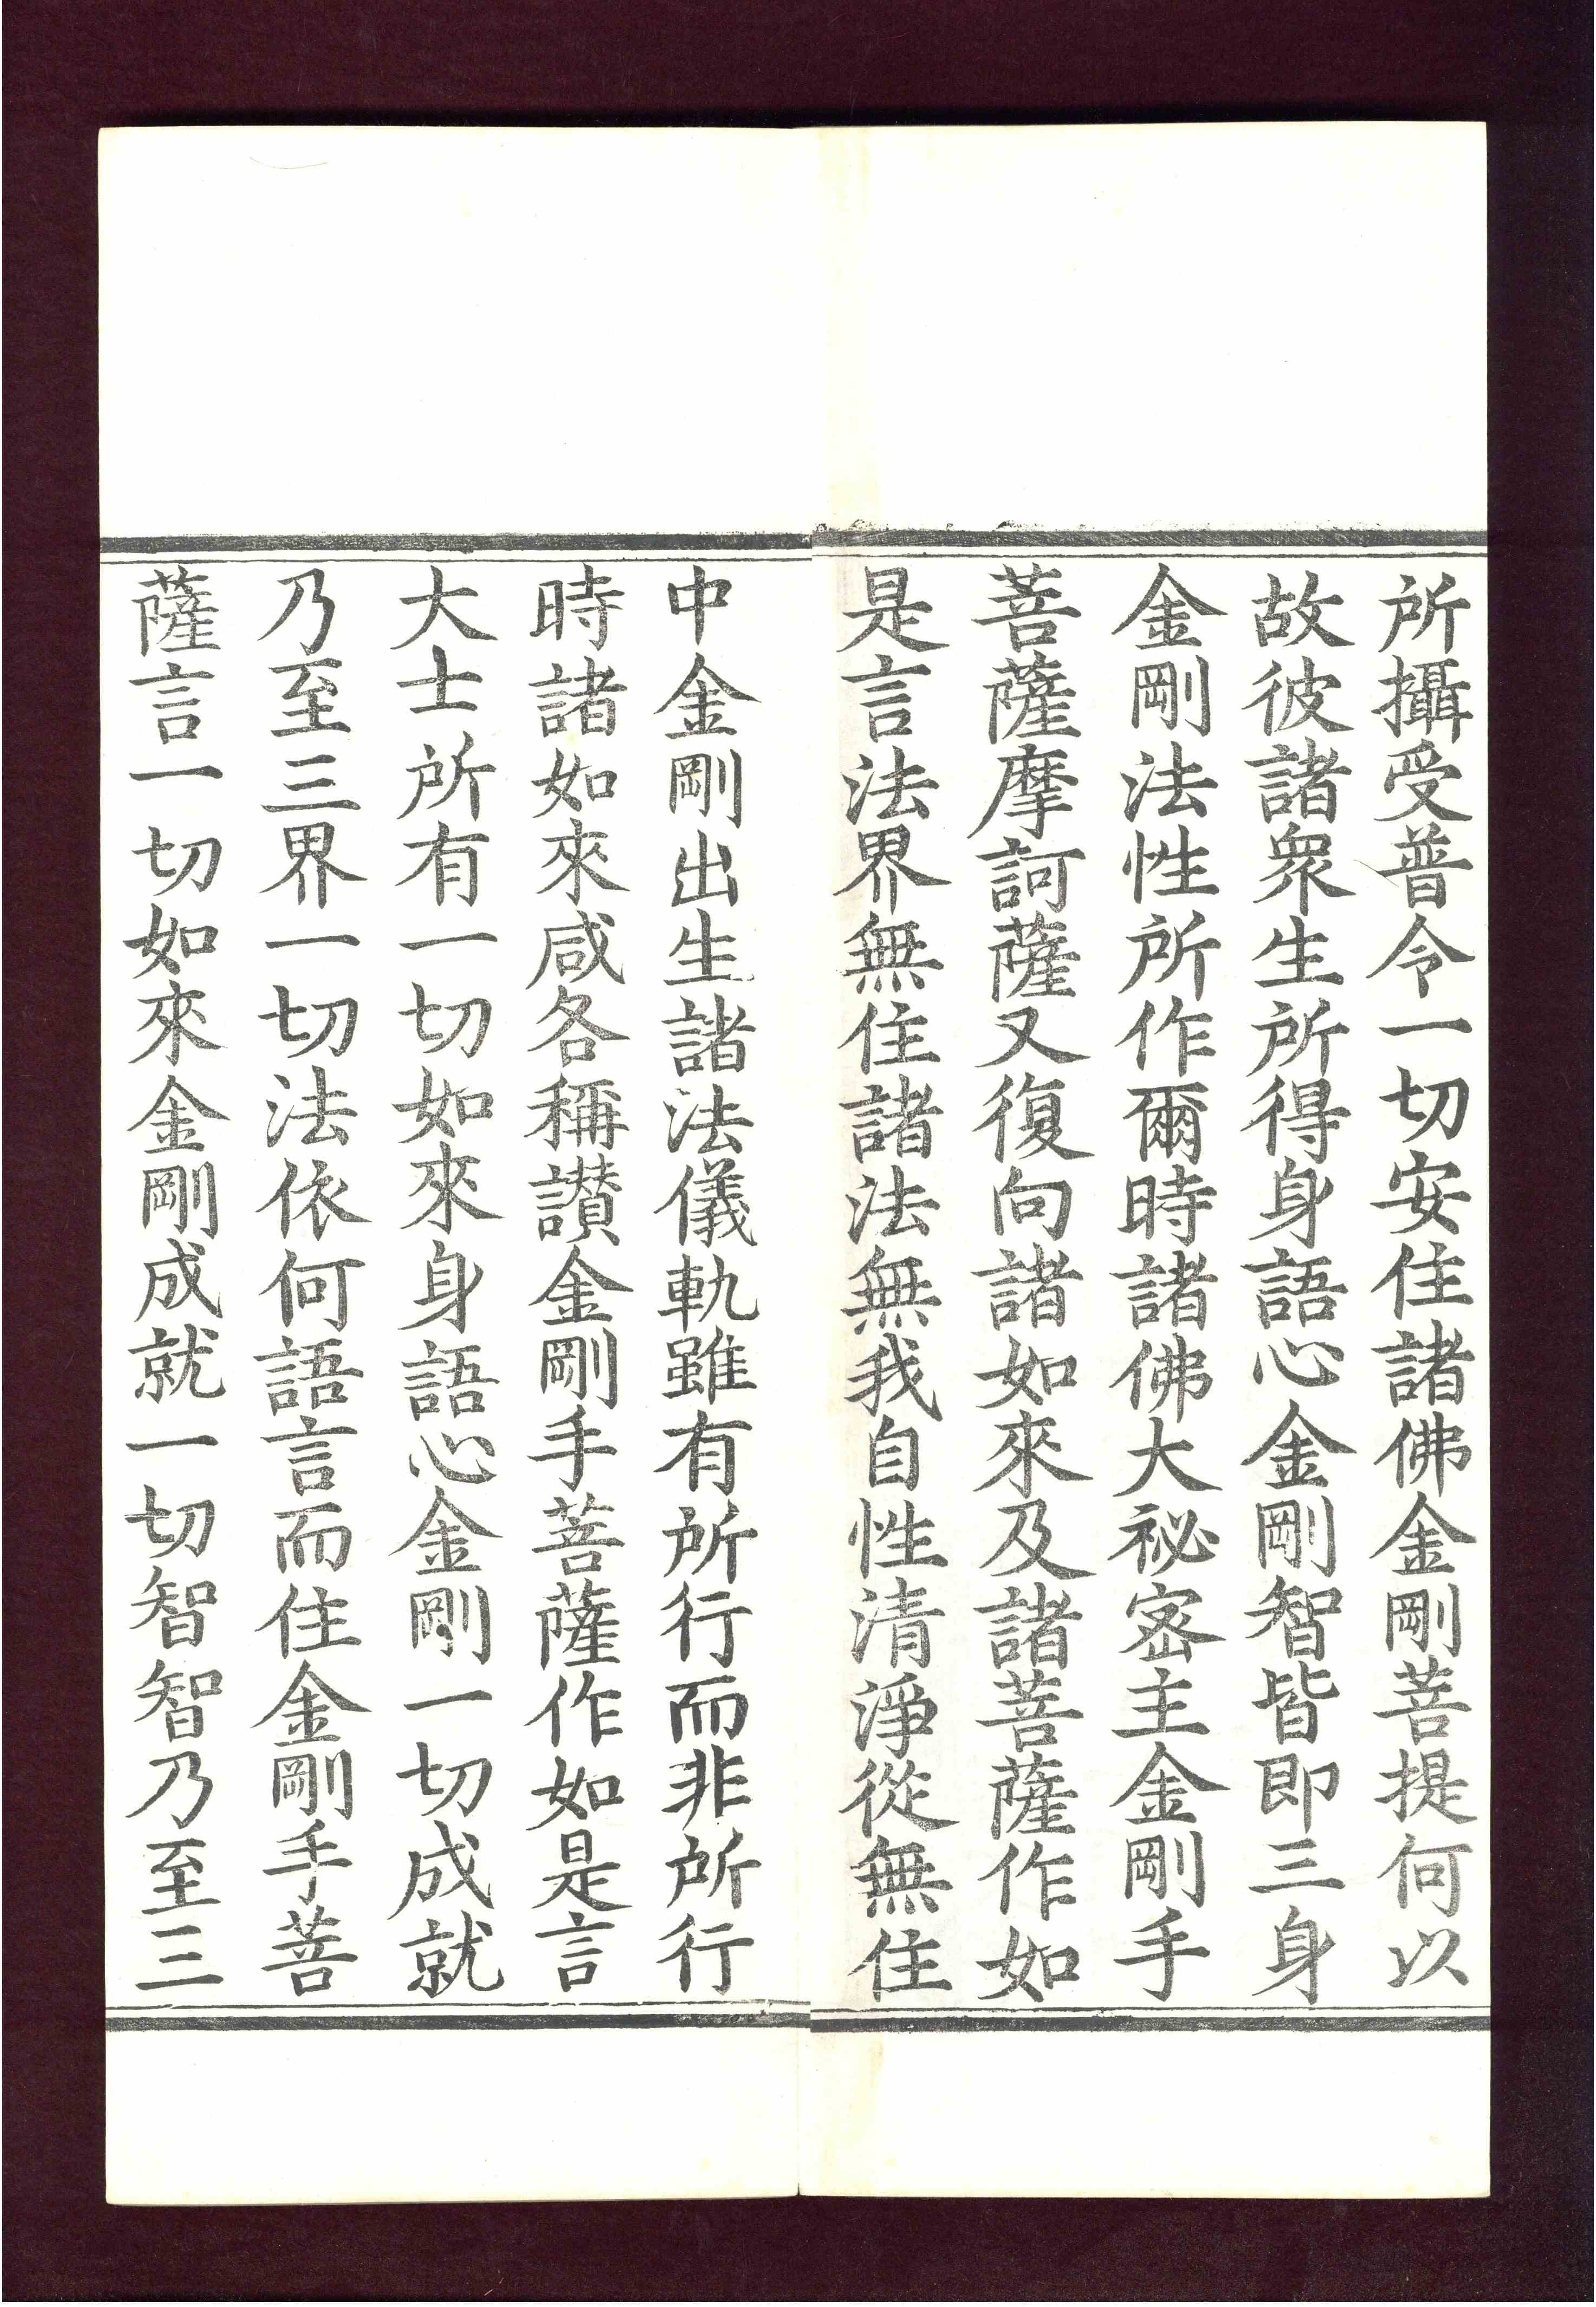 所攝受普令一切安住諸佛金剛菩提何以
故彼諸衆生所得身語心金剛智皆即三身
金剛法性所作爾時諸佛大祕密主金剛手
菩薩摩訶薩又復向諸如來及諸菩薩作如
是言法界無住諸法無我自性清淨從無住
中金剛出生諸法儀軌雖有所行而非所行
時諸如來咸各稱讃金剛手菩薩作如是言
大士所有一切如來身語心金剛一切成就
乃至三界一切法依何語言而住金剛手菩
薩言一切如來金剛成就一切智智乃至三